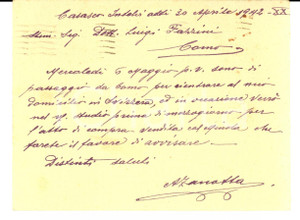 Casasco Intelvi addì 20 Aprile 1942-XX
Stim. Sig. Dott. Luigi Fazzini
Como
Mercoledì 6 Maggio p.v. sono di
passaggio da Como per rientrare al mio
domicilio in Svizzera, ed in occasione verrò
nel vs. studio prima di mezzogiorno per
l'atto di compra vendita col che
farete il favore di avvisare.
Distinti saluti
A. Zanotta